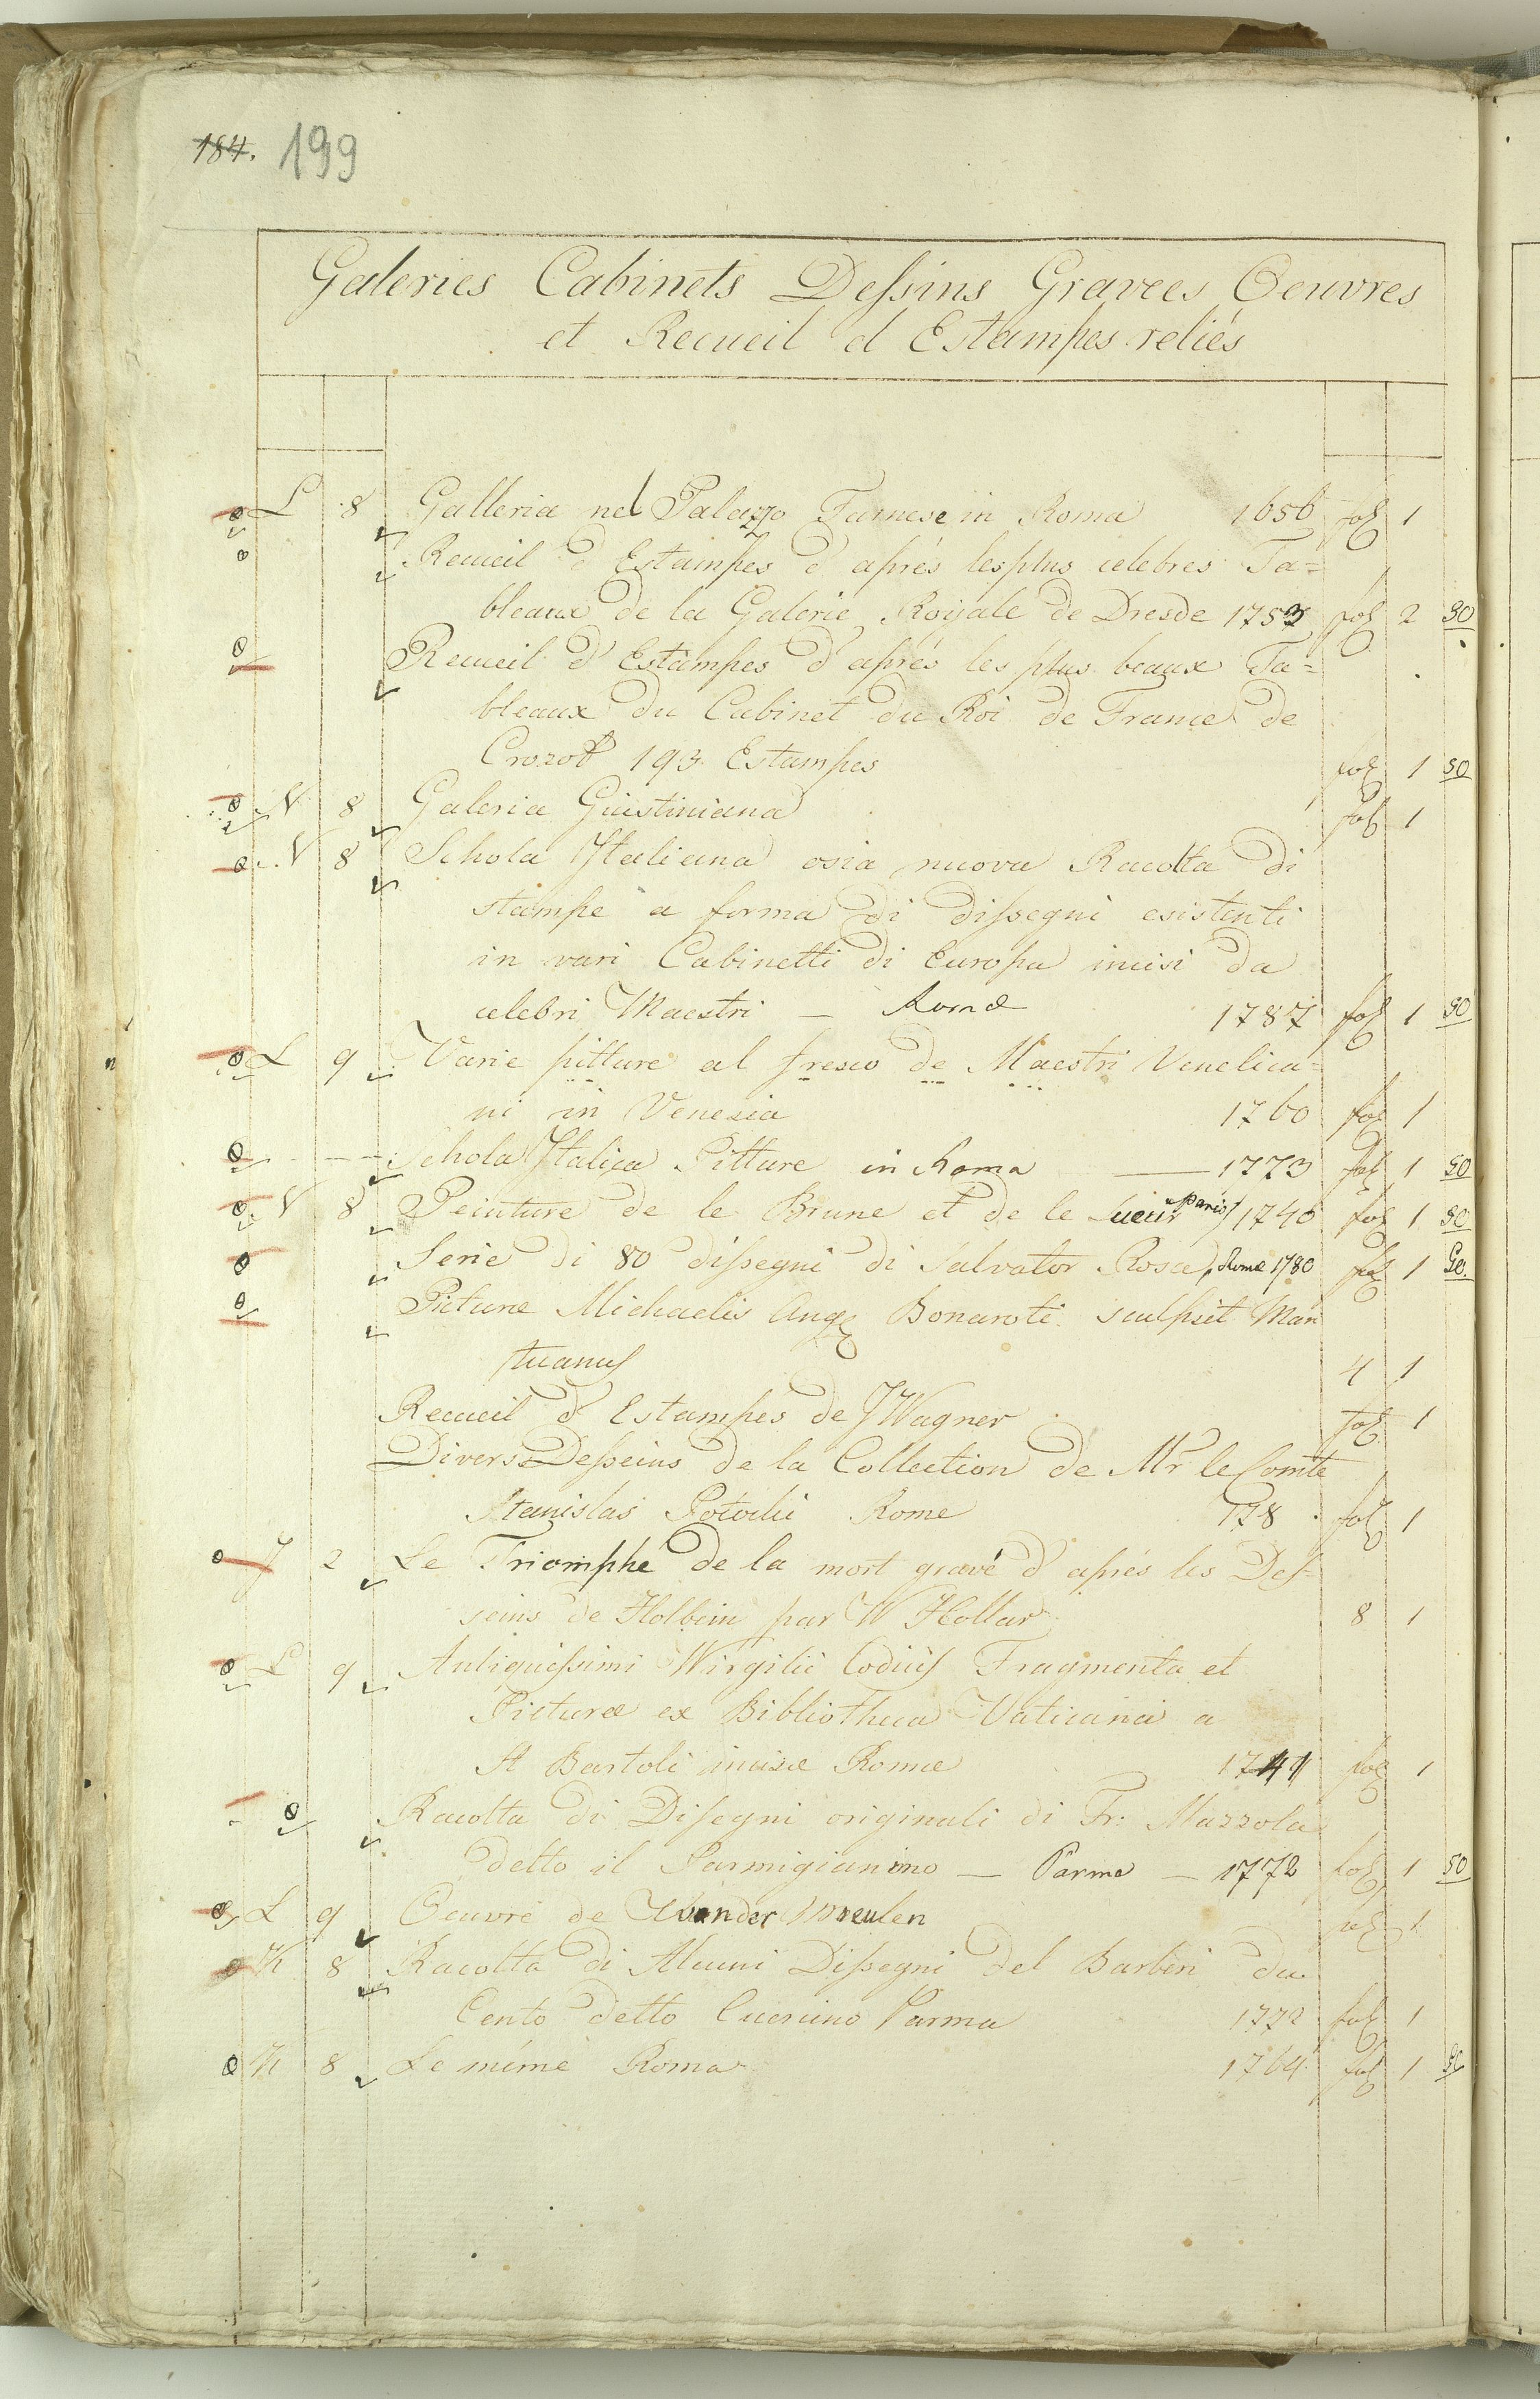 184. 199
Galeries Cabinets Dessins Gravees Oeuvres
et Recueil d Estampes reliés
L 8 Galleria nel Palazzo Farnese in Roma 1656 fol 1
Recueil d Estampes d aprés les plus celebres Ta=
bleaux de la Galerie Royale de Dresde 1753 fol 2 50
Recueil d' Estampes d aprés les plus beaux Ta=
bleaux du Cabinet du Roi de France de
Crozot 193. Estampes fol 1 50
N 8 Galeria Giustiniana fol 1
N 8 Schola Italiana osia nuova Racolta di
stampe a forma di dissegni esistenti
in vari Cabinetti di Europa incisi da
celebri Maestri — Romæ 1787 fol 1 50
L 9 Varie pitture al fresco de Maestri Venelica=
ni in Venezia 1760 fol 1
Schola Italica Pitture in Roma — 1773 fol 1 50
N 8 Peinture de le Brune et de le Sueur Paris 1740 fol 1 50
Serie di 80 dissegni di Salvator Rosa, Romæ 1780 fol 1 50.
Picturæ Michaelis Ang Bonaroti sculpsit Man
tuanus 4 1
Recueil d' Estampes de J Wagner fol 1
Divers Desseins de la Collection de Mr le Comte
Stanislas Potocki Rome 178 fol 1
J 2 Le Triomphe de la mort gravé d' aprés les Des-
seins de Holbein par W Hollar 8 1
L 9 Antiquissimi Wirgilii Codicis Fragmenta et
Picturæ ex Bibliotheca Vaticana a
St Bartoli incisæ Romæ 1741 fol 1
Racolta di Disegni originali di Fr: Mazzola
detto il Parmigianino — Parma — 1772 fol 1 50
L 9 Oeuvre de Vander Meulen fol 1
K 8 Racolta di Alcuni Dissegni del Barbiri da
Cento detto Guercino Parma 1772 fol 1
K 8 Le même Roma 1764 fol 1 50